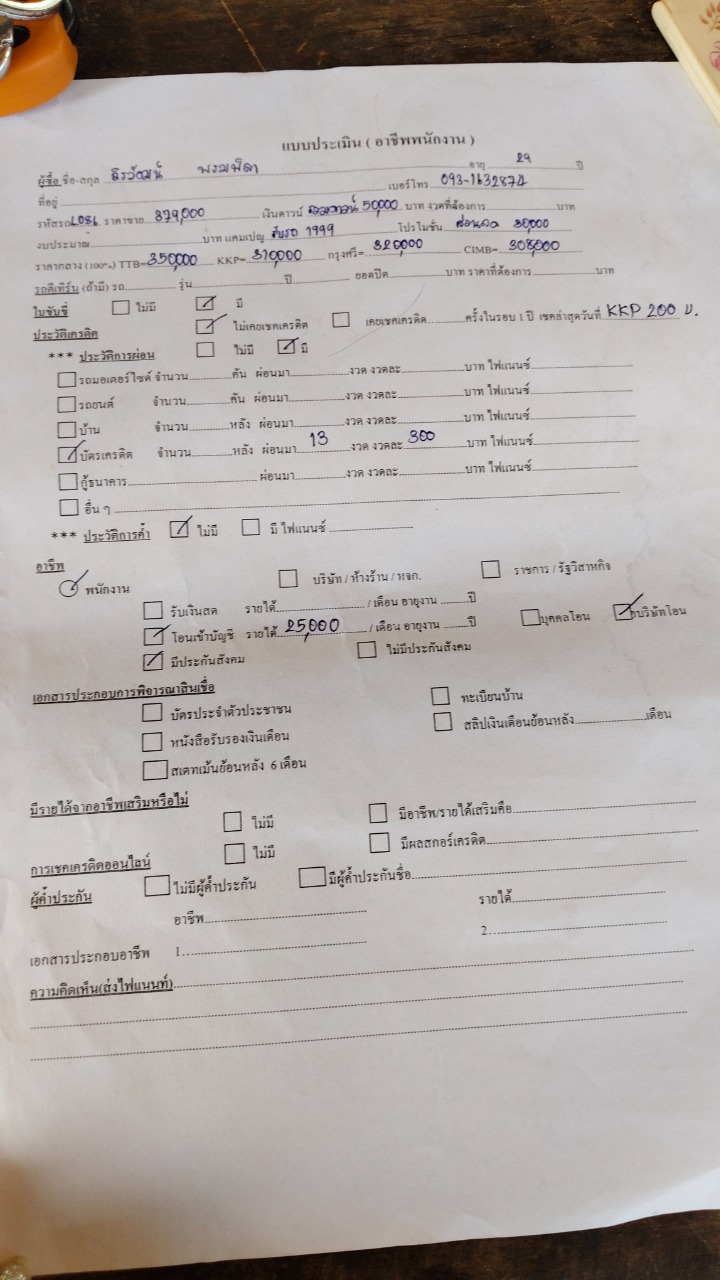 แบบประเมิน ( อาชีพพนักงาน )
ผู้ซื้อ ชื่อ-สกุล ธิรวัฒน์ อายุ 29 ปี
ที่อยู่ เบอร์โทร 093-1632874
รหัสรถ L086 ราคาขาย 379,000 เงินดาวน์ 50000 บาท งวดที่ต้องการ บาท
งบประมาณ บาท แคมเปญ รับรถ 1999 โปรโมชั่น ส่วนลด 30,000
ราคากลาง (100%) TTB= 350,000 KKP= 310,000 กรุงศรี= 320,000 CIMB= 308,000
รถตีเทิร์น (ถ้ามี) รถ รุ่น ปี ยอดปิด บาท ราคาที่ต้องการ บาท
ใบขับขี่ ไม่มี มี
ประวัติเครดิต ไม่เคยเชคเครดิต เคยเชคเครดิต ครั้งในรอบ 1 ปี เชคล่าสุดวันที่ KKP 200 บ.
*** ประวัติการผ่อน ไม่มี มี
รถมอเตอร์ไซค์ จำนวน คัน ผ่อนมา งวด งวดละ บาท ไฟแนนซ์
รถยนต์ จำนวน คัน ผ่อนมา งวด งวดละ บาท ไฟแนนซ์
บ้าน จำนวน หลัง ผ่อนมา งวด งวดละ บาท ไฟแนนซ์
บัตรเครดิต จำนวน หลัง ผ่อนมา 13 งวด งวดละ 300 บาท ไฟแนนซ์
กู้ธนาคาร ผ่อนมา งวด งวดละ บาท ไฟแนนซ์
อื่น ๆ
*** ประวัติการค้ำ ไม่มี มี ไฟแนนซ์
อาชีพ
พนักงาน บริษัท / ห้างร้าน / หจก. ราชการ / รัฐวิสาหกิจ
รับเงินสด รายได้ / เดือน อายุงาน ปี
โอนเข้าบัญชี รายได้ 25,000 / เดือน อายุงาน ปี บุคคลโอน บริษัทโอน
มีประกันสังคม ไม่มีประกันสังคม
เอกสารประกอบการพิจารณาสินเชื่อ
บัตรประจำตัวประชาชน ทะเบียนบ้าน
หนังสือรับรองเงินเดือน สลิปเงินเดือนย้อนหลัง เดือน
สเตทเม้นย้อนหลัง 6 เดือน
มีรายได้จากอาชีพเสริมหรือไม่
ไม่มี มีอาชีพ/รายได้เสริมคือ
การเชคเครดิตออนไลน์ ไม่มี มีผลสกอร์เครดิต
ผู้ค้ำประกัน ไม่มีผู้ค้ำประกัน มีผู้ค้ำประกันชื่อ
อาชีพ รายได้
เอกสารประกอบอาชีพ 1. 2.
ความคิดเห็น(ส่งไฟแนนท์)